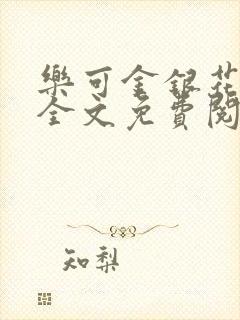 樂可金銀花
全文免費閱
知梨